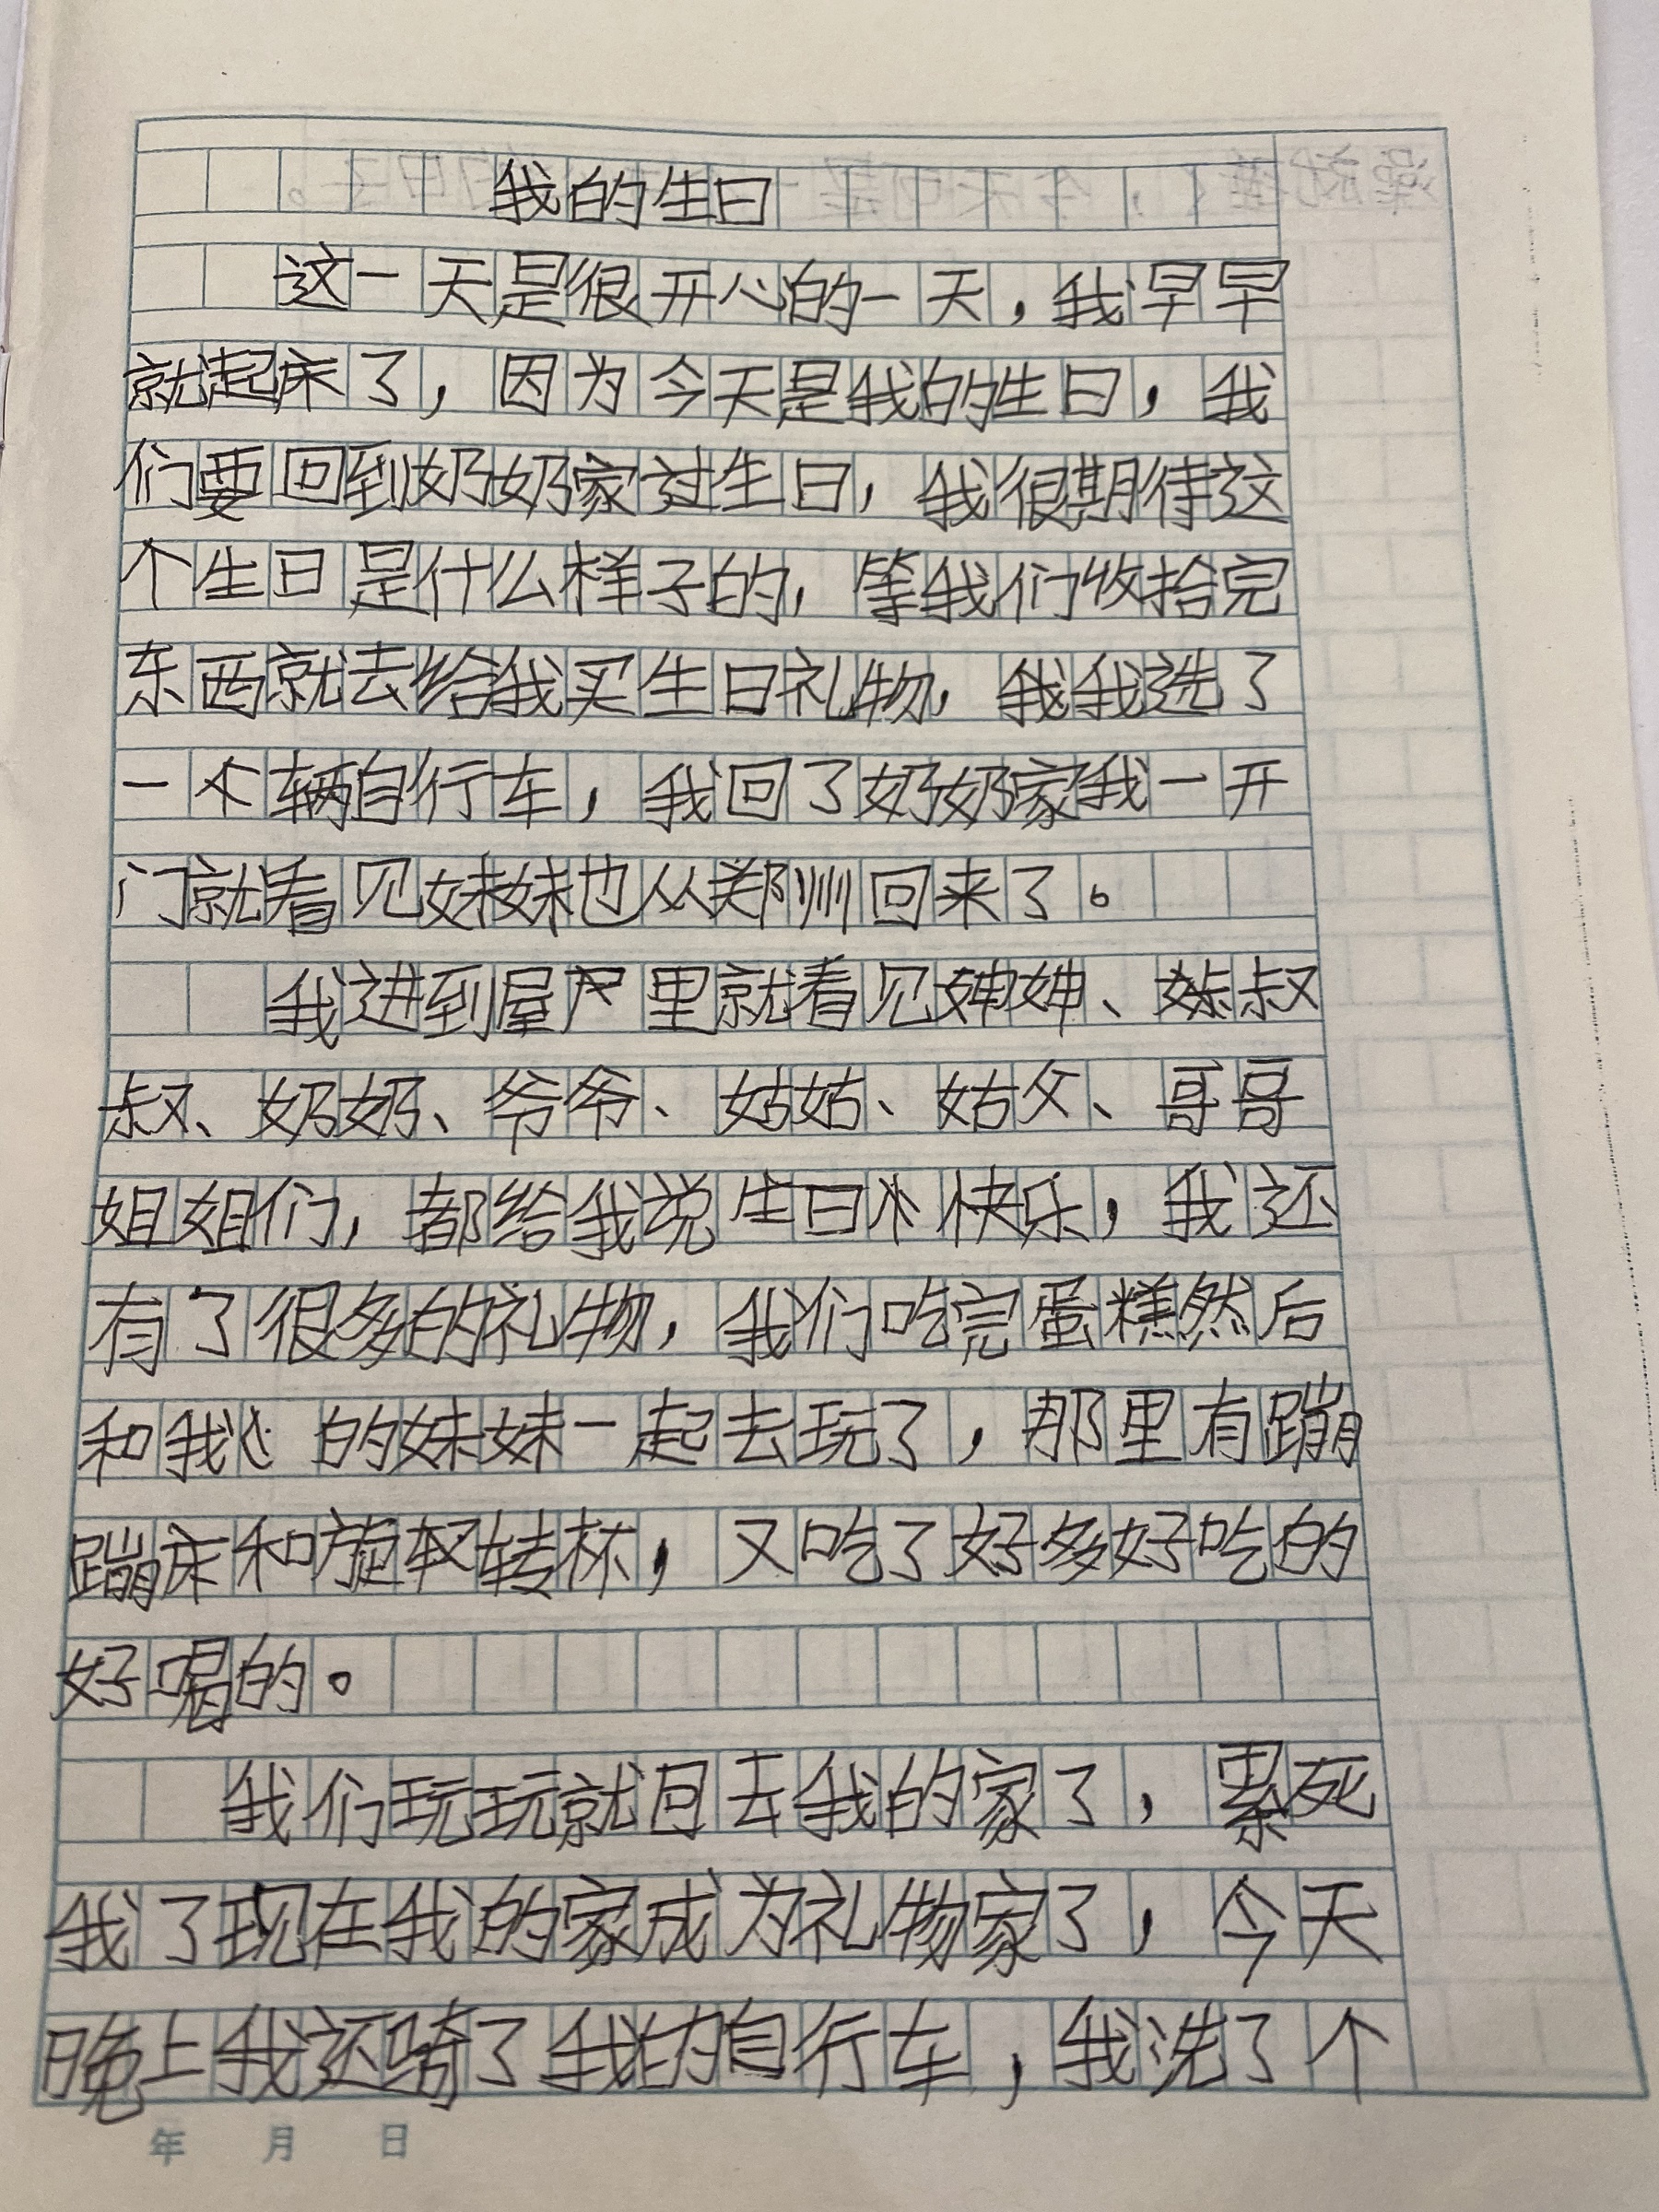 我的生日
这一天是很开心的一天，我早早
就起床了，因为今天是我的生日，我
们要回到奶奶家过生日，我很期待这
个生日是什么样子的，等我们收拾完
东西就去给我买生日礼物，我我选了
一个辆自行车，我回了奶奶家我一开
门就看见妹妹也从郑州回来了。
我进到屋里就看见婶婶、叔
叔、奶奶、爷爷、姑姑、姑父、哥哥
姐姐们，都给我说生日快乐，我还
有了很多的礼物，我们吃完蛋糕然后
和我的妹妹一起去玩了，那里有蹦
蹦床和旋转杯，又吃了好多好吃的
好喝的。
我们玩玩就回去我的家了，累死
我了现在我的家成为礼物家了，今天
晚上我还骑了我的自行车，我洗了个
年 月 日